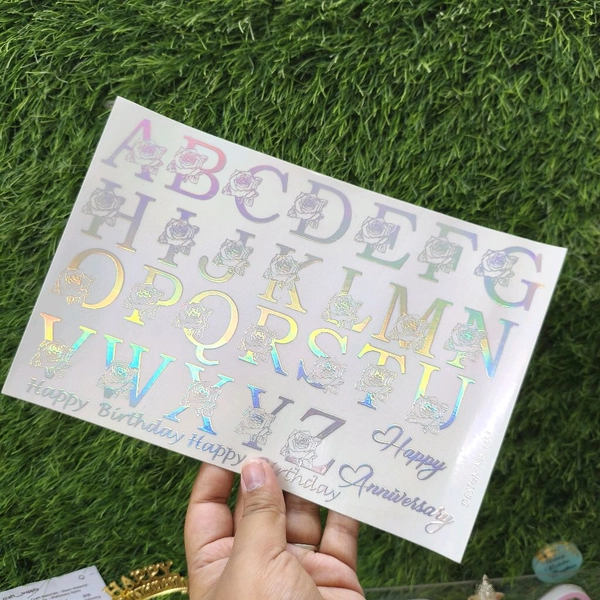 A B C D E F G
H I J K L M N
O P Q R S T U
V W X Y Z
Happy Birthday Happy Birthday
Happy
Anniversary
HAPPY